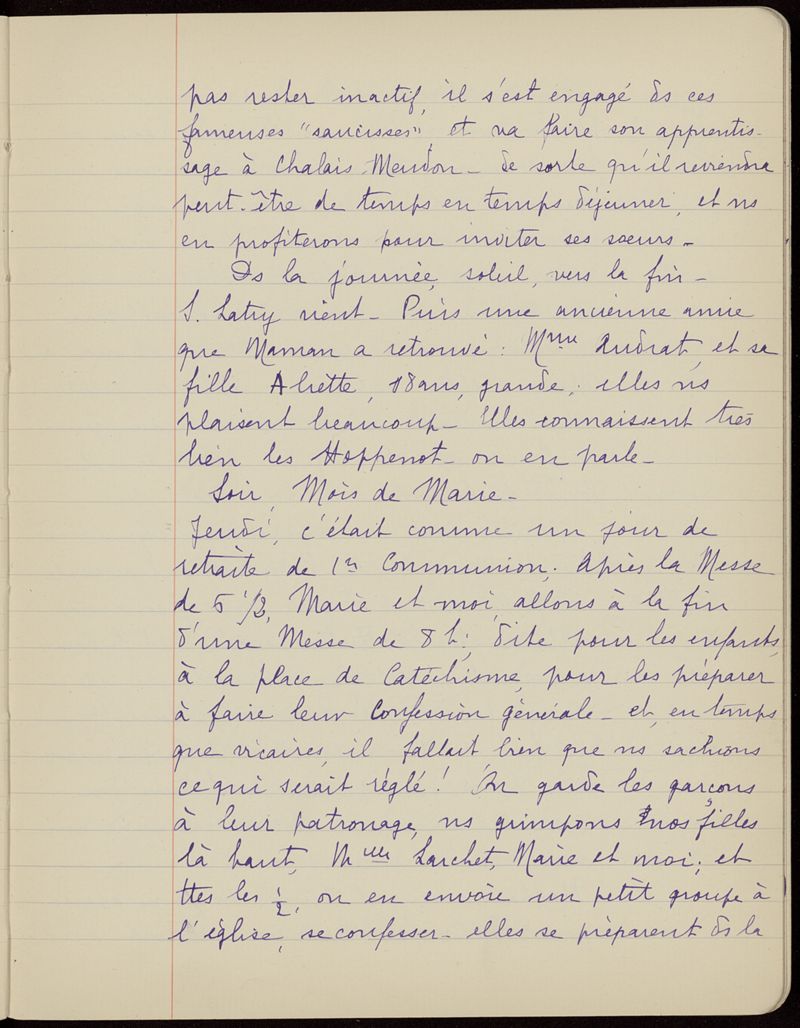 pas rester inactif, il s'est engagé ds ces
fameuses "saucisses", et va faire son apprentis-
sage à Chalais-Meudon - de sorte qu'il reviendra
peut-être de temps en temps déjeuner, et ns
en profiterons pour inviter ses sœurs -
Ds la journée, soleil, vers la fin -
S. Latry vient - Puis une ancienne amie
que Maman a retrouvé : Mme Audrat, et sa
fille Aliette, 18 ans, grande, elles ns
plaisent beaucoup - Elles connaissent très
bien les Hoppenot - on en parle -
Soir, Mois de Marie -
Jeudi, c'était comme un jour de
retraite de 1re Communion. Après la Messe
de 5 1/2, Marie et moi, allons à la fin
d'une Messe de 8 h., dite pour les enfants,
à la place de Catéchisme, pour les préparer
à faire leur Confession générale - et, en temps
que vicaires, il fallait bien que ns sachions
ce qui serait réglé ! On garde les garçons
à leur patronage, ns grimpons nos filles
là haut, Mlle Larchet, Marie et moi, et
ttes les 1/2, on en envoie un petit groupe à
l'église, se confesser - elles se préparent ds la